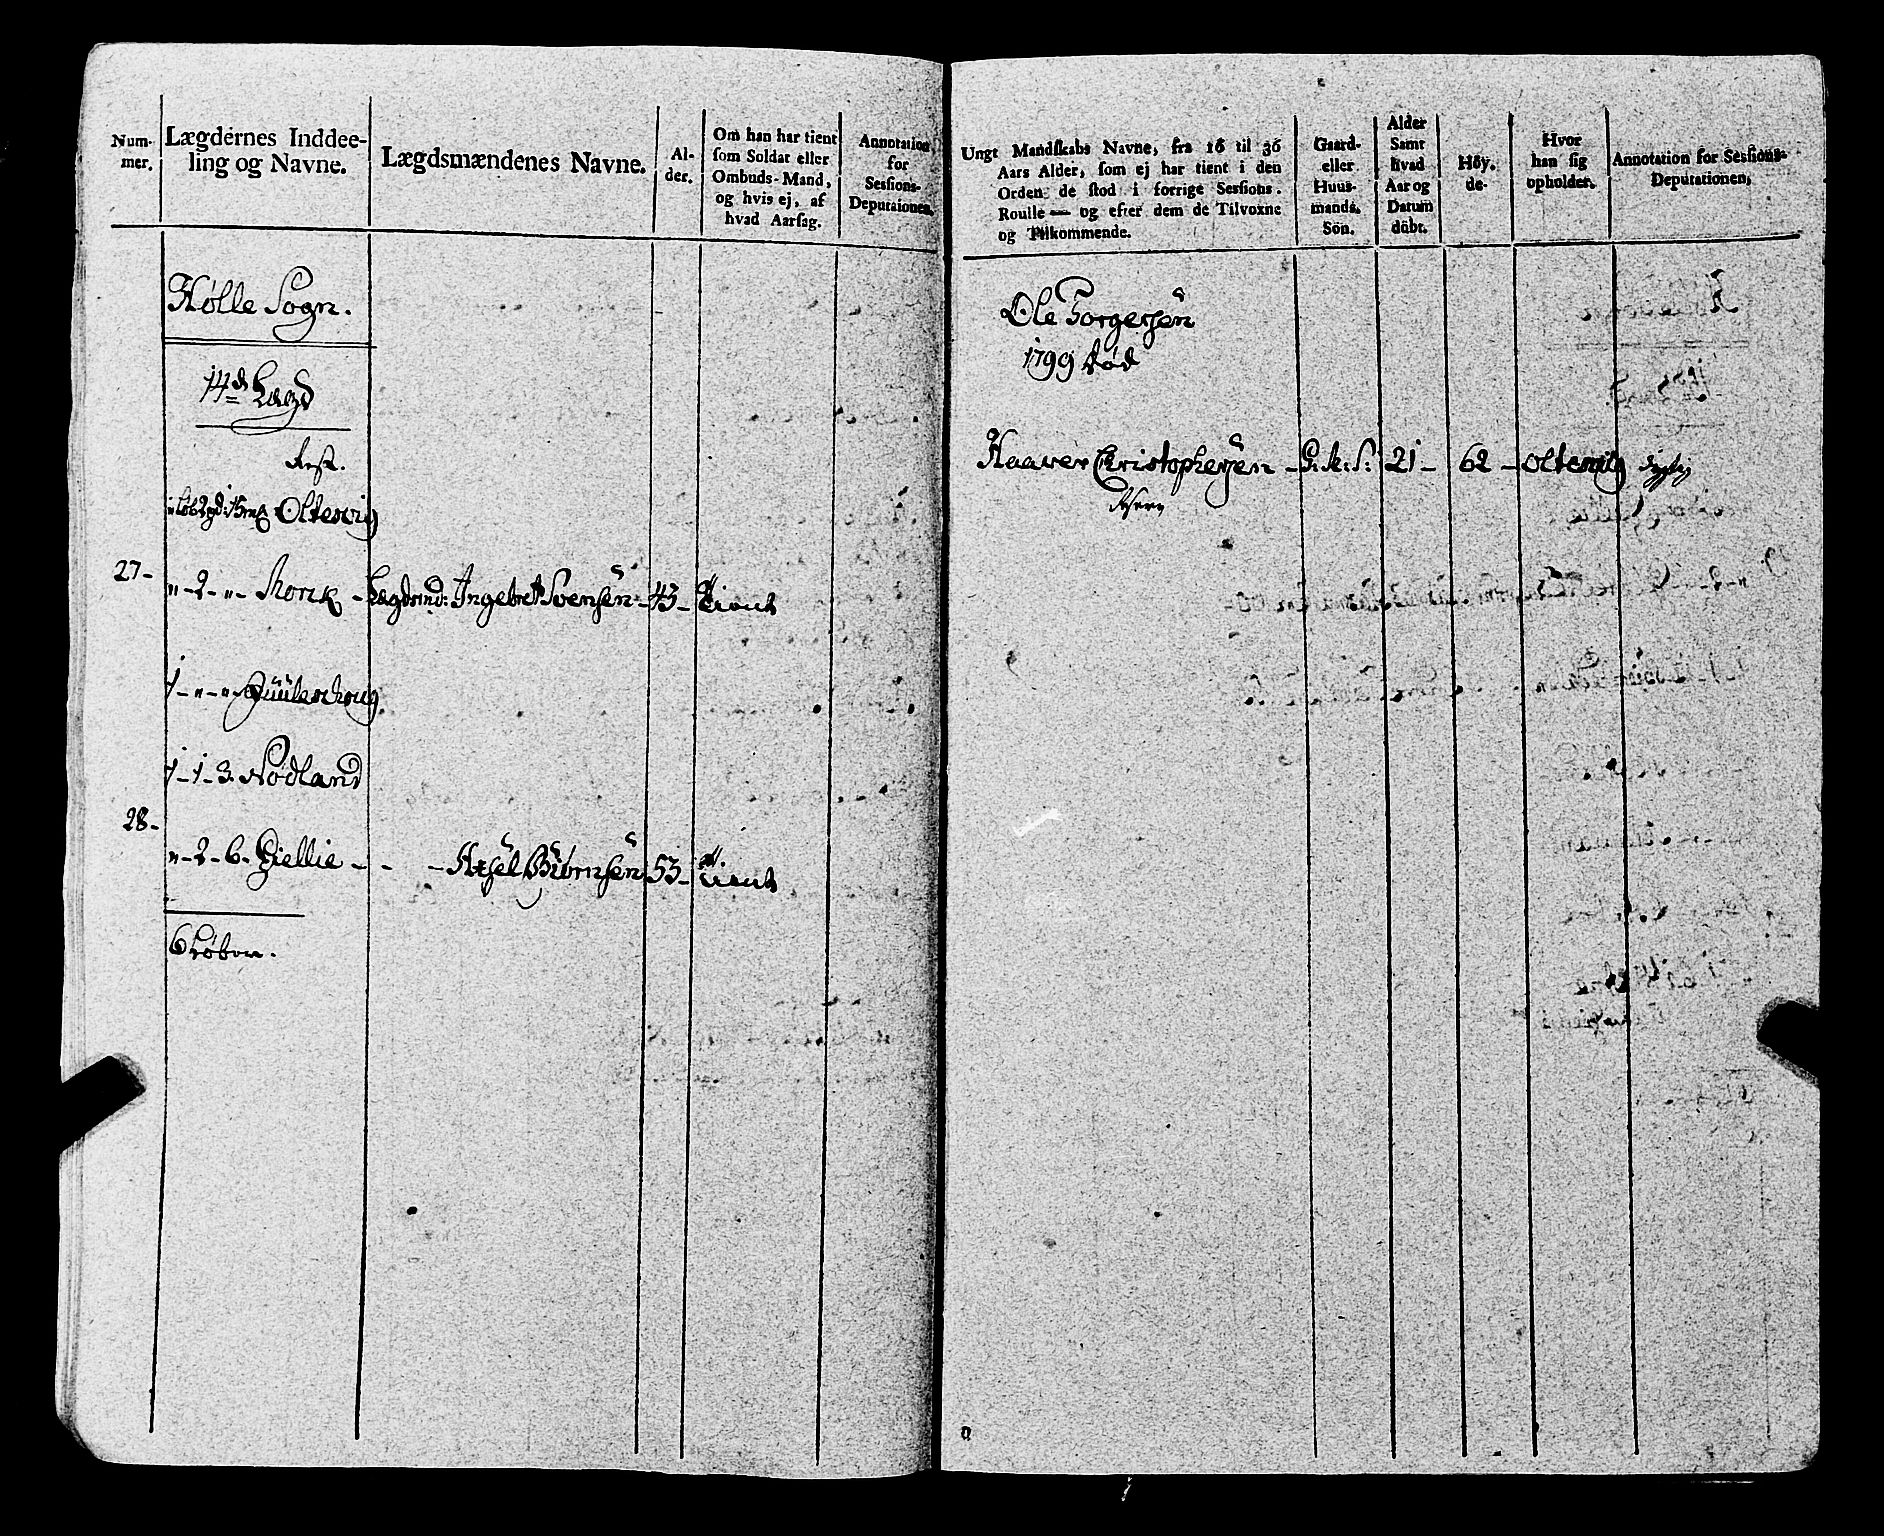 Num-
mer.
Lægdernes Inddee-
ling og Navne.
Lægdsmændenes Navne.
Al-
der.
Om han har tient
som Soldat eller
Ombuds-Mand,
og hvis ej, af
hvad Aarsag.
Annotation
for
Sessions-
Deputationen.
Hølle Sogn.
14de Lægd
Oltesvig
27- "-2-"- Morik - Lægdsmd: Ingebret Svensen - 43- Tient
1-"-"-
1-1-3. Nødland
28- "-2-6- Giellie - - - Axsel Biørnsen 53- Tient
6 Løber.
Ungt Mandskabs Navne, fra 16 til 36
Aars Alder, som ej har tient i den
Orden de stod i forrige Sessions-
Roulle — og efter dem de Tilvoxne
og Tilkommende.
Gaard-
eller
Huus-
mands.
Søn.
Alder
Samt
hvad
Aar og
Datum
døbt.
Høy-
de.
Hvor
han sig
opholder.
Annotation for Sessions-
Deputationen,
Ole Torgersen
1799 død
Haaver Christophersen - G:M:S: 21- 62- Oltesvig dygtig